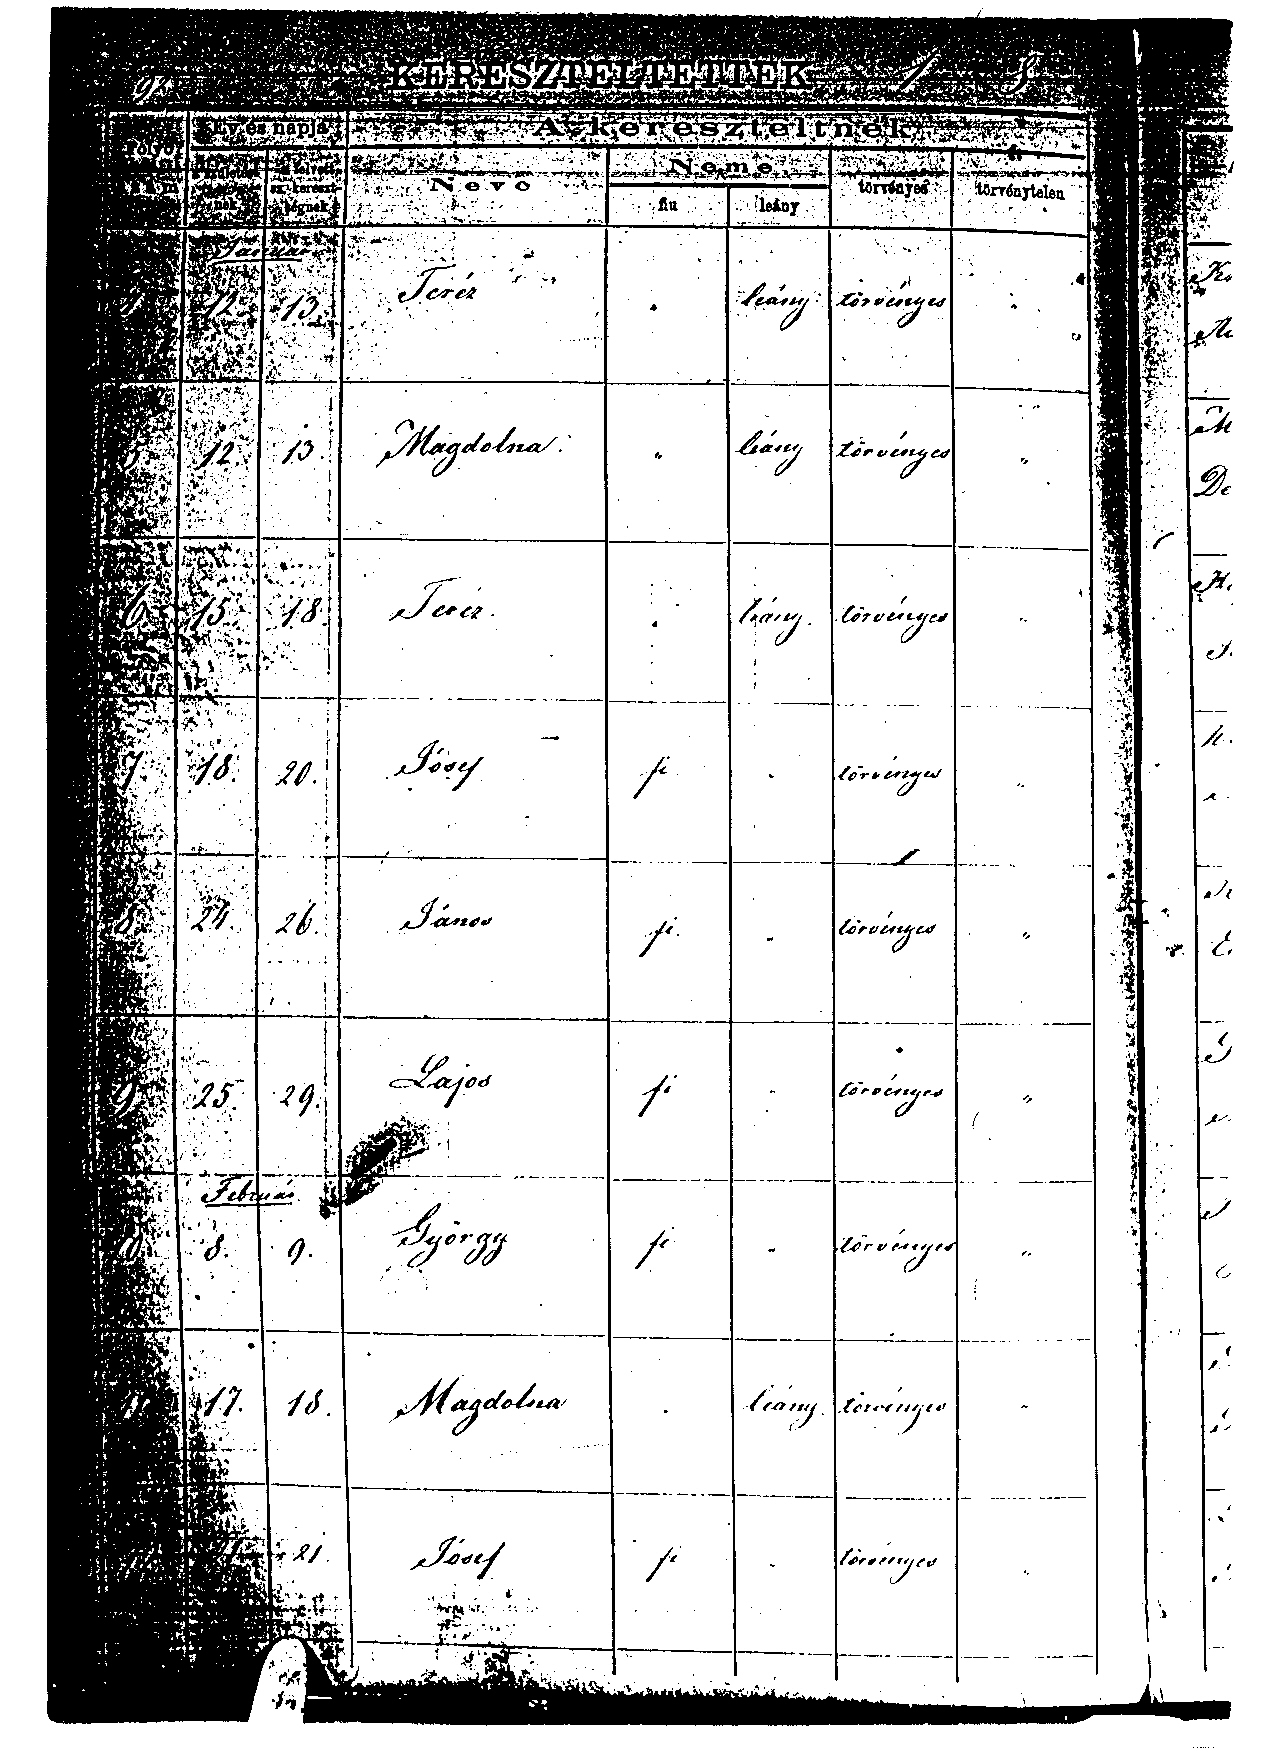 KERESZTELTETTEK 1 8
Év és napja A kereszteltnek
folyó szám a születésnek kereszt-ségnek Neve Neme törvényes törvénytelen
fiu leány
Január
4. 12. 13. Teréz " leány törvényes "
5. 12. 13. Magdolna " leány törvényes "
6. 15. 18. Teréz " leány törvényes "
7. 18. 20. Jósef fi " törvényes "
8. 24. 26. János fi " törvényes "
9. 25. 29. Lajos fi " törvényes "
Február
10. 8. 9. György fi " törvényes "
11. 17. 18. Magdolna " leány törvényes "
21. Jósef fi " törvényes "